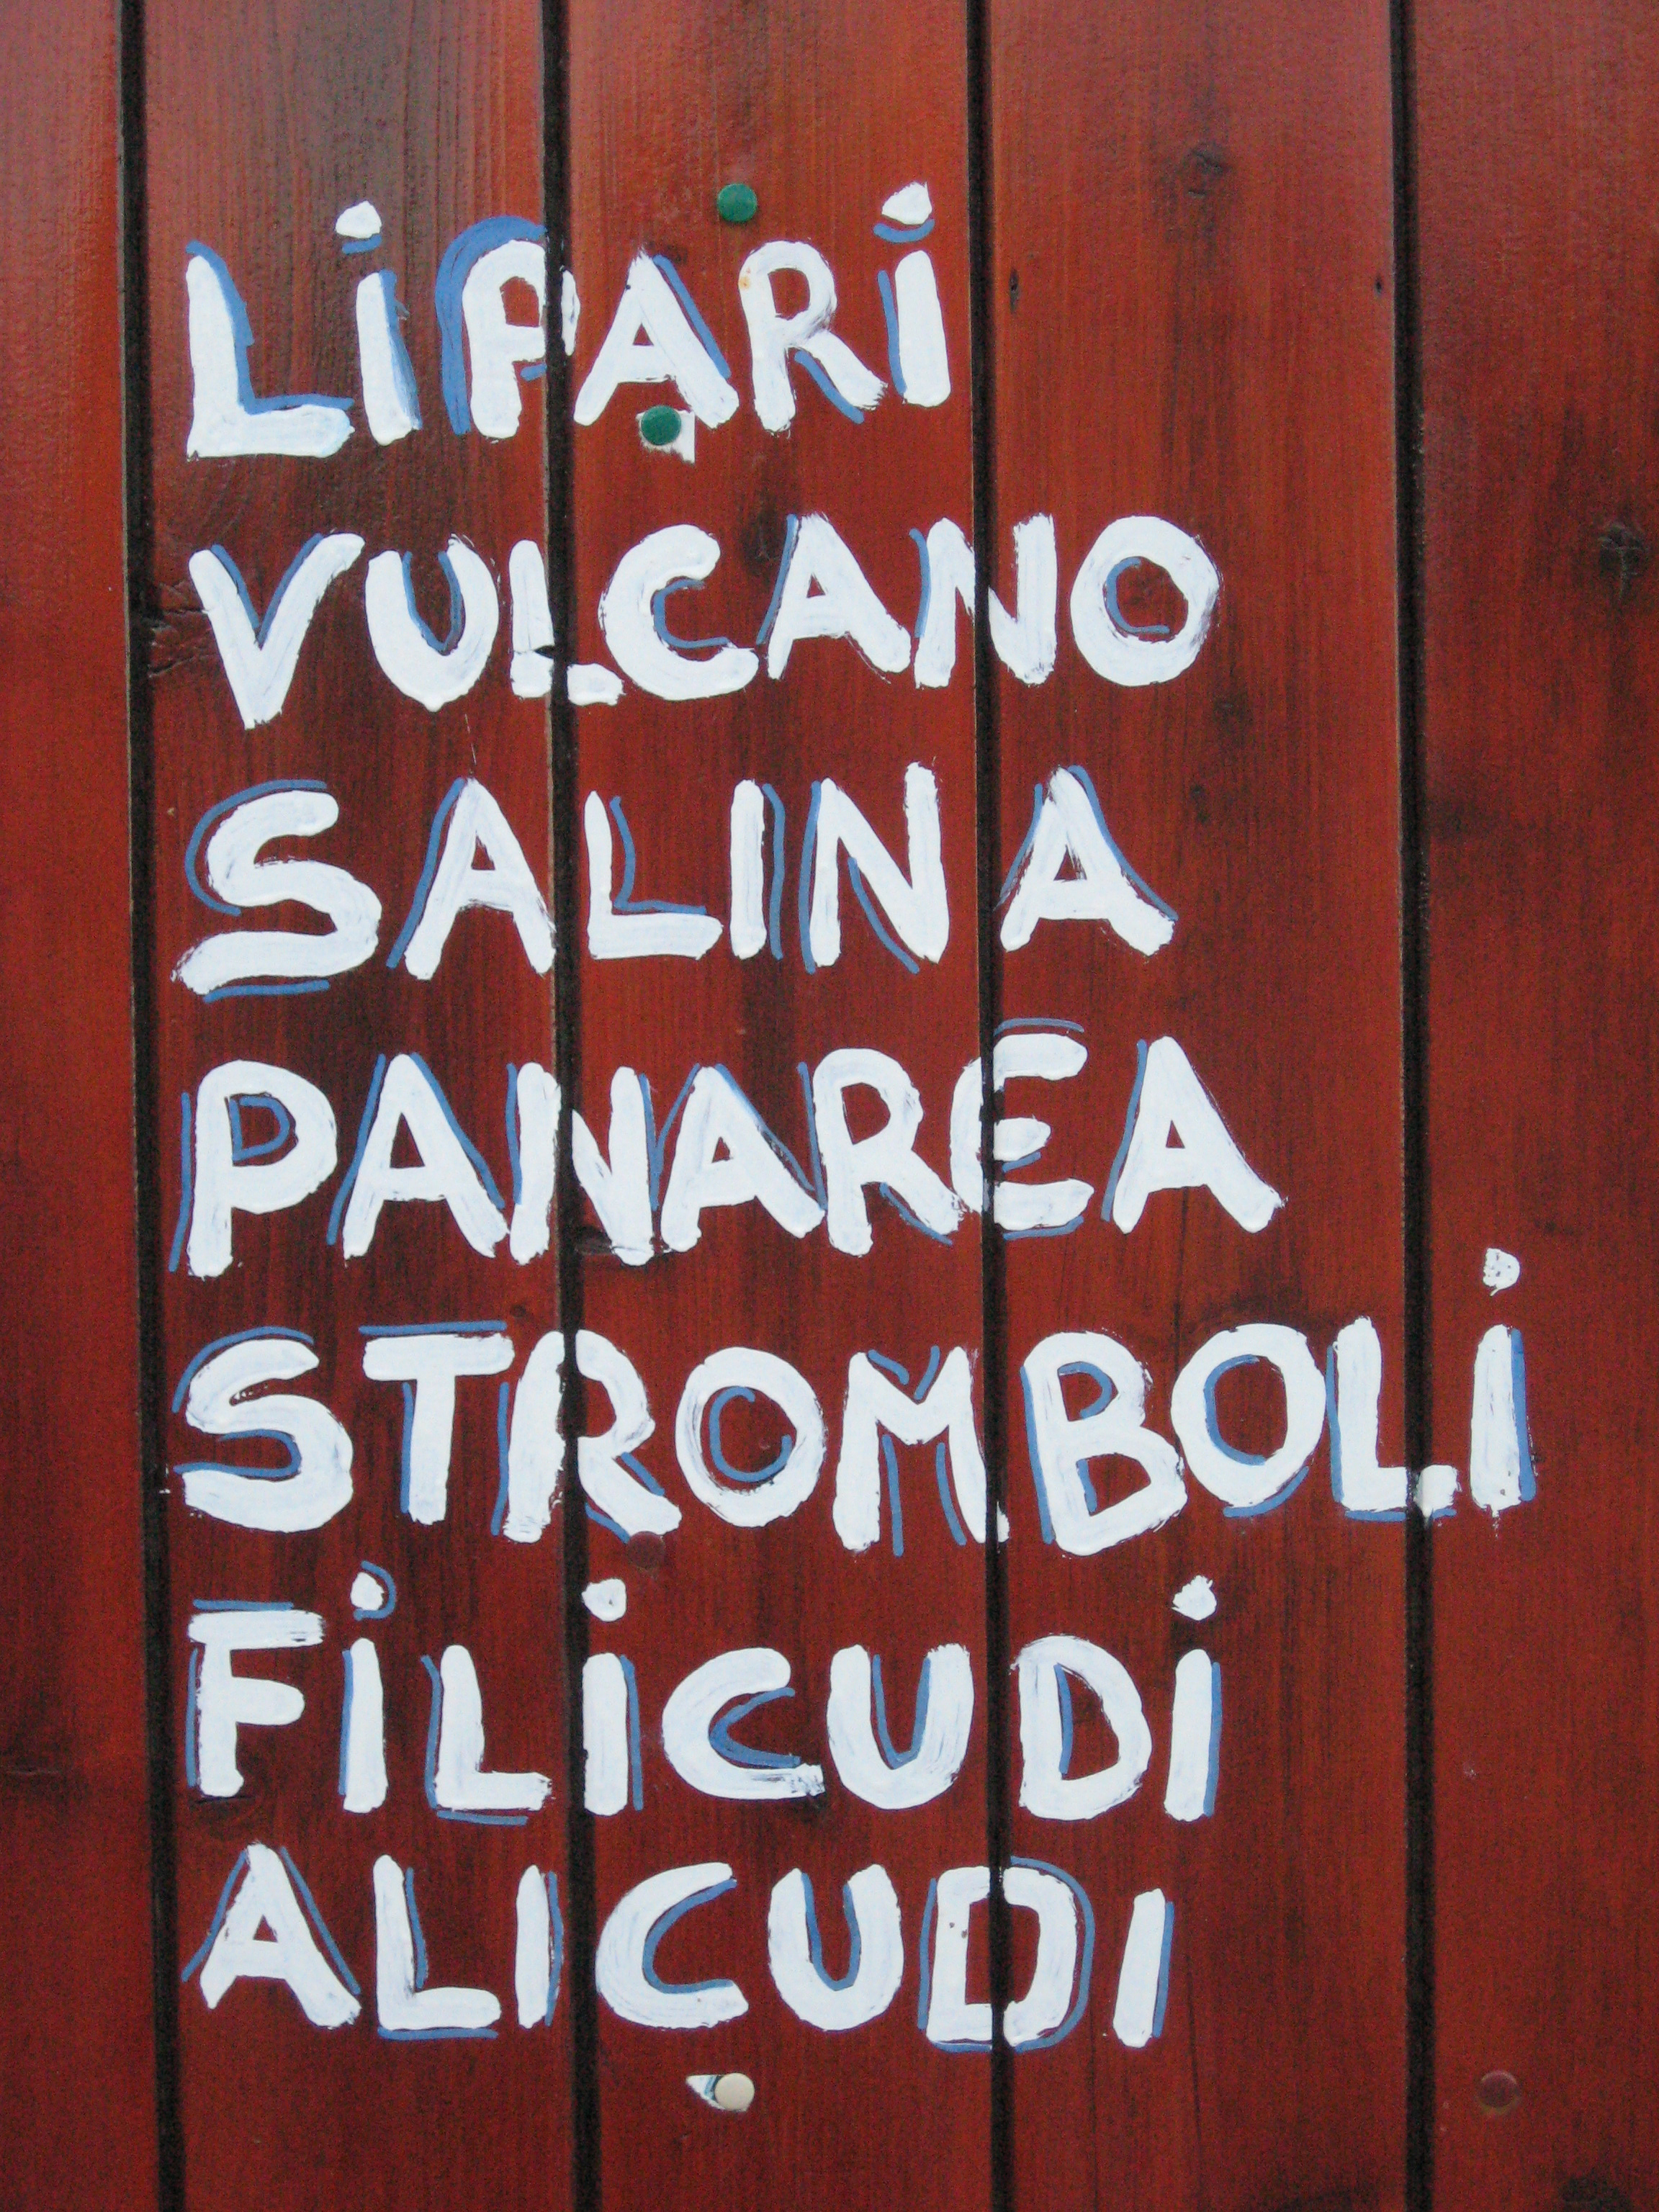 LiPARi
VULCANO
SALINA
PANAREA
STROMBOLi
FiLiCUDi
ALICUDI